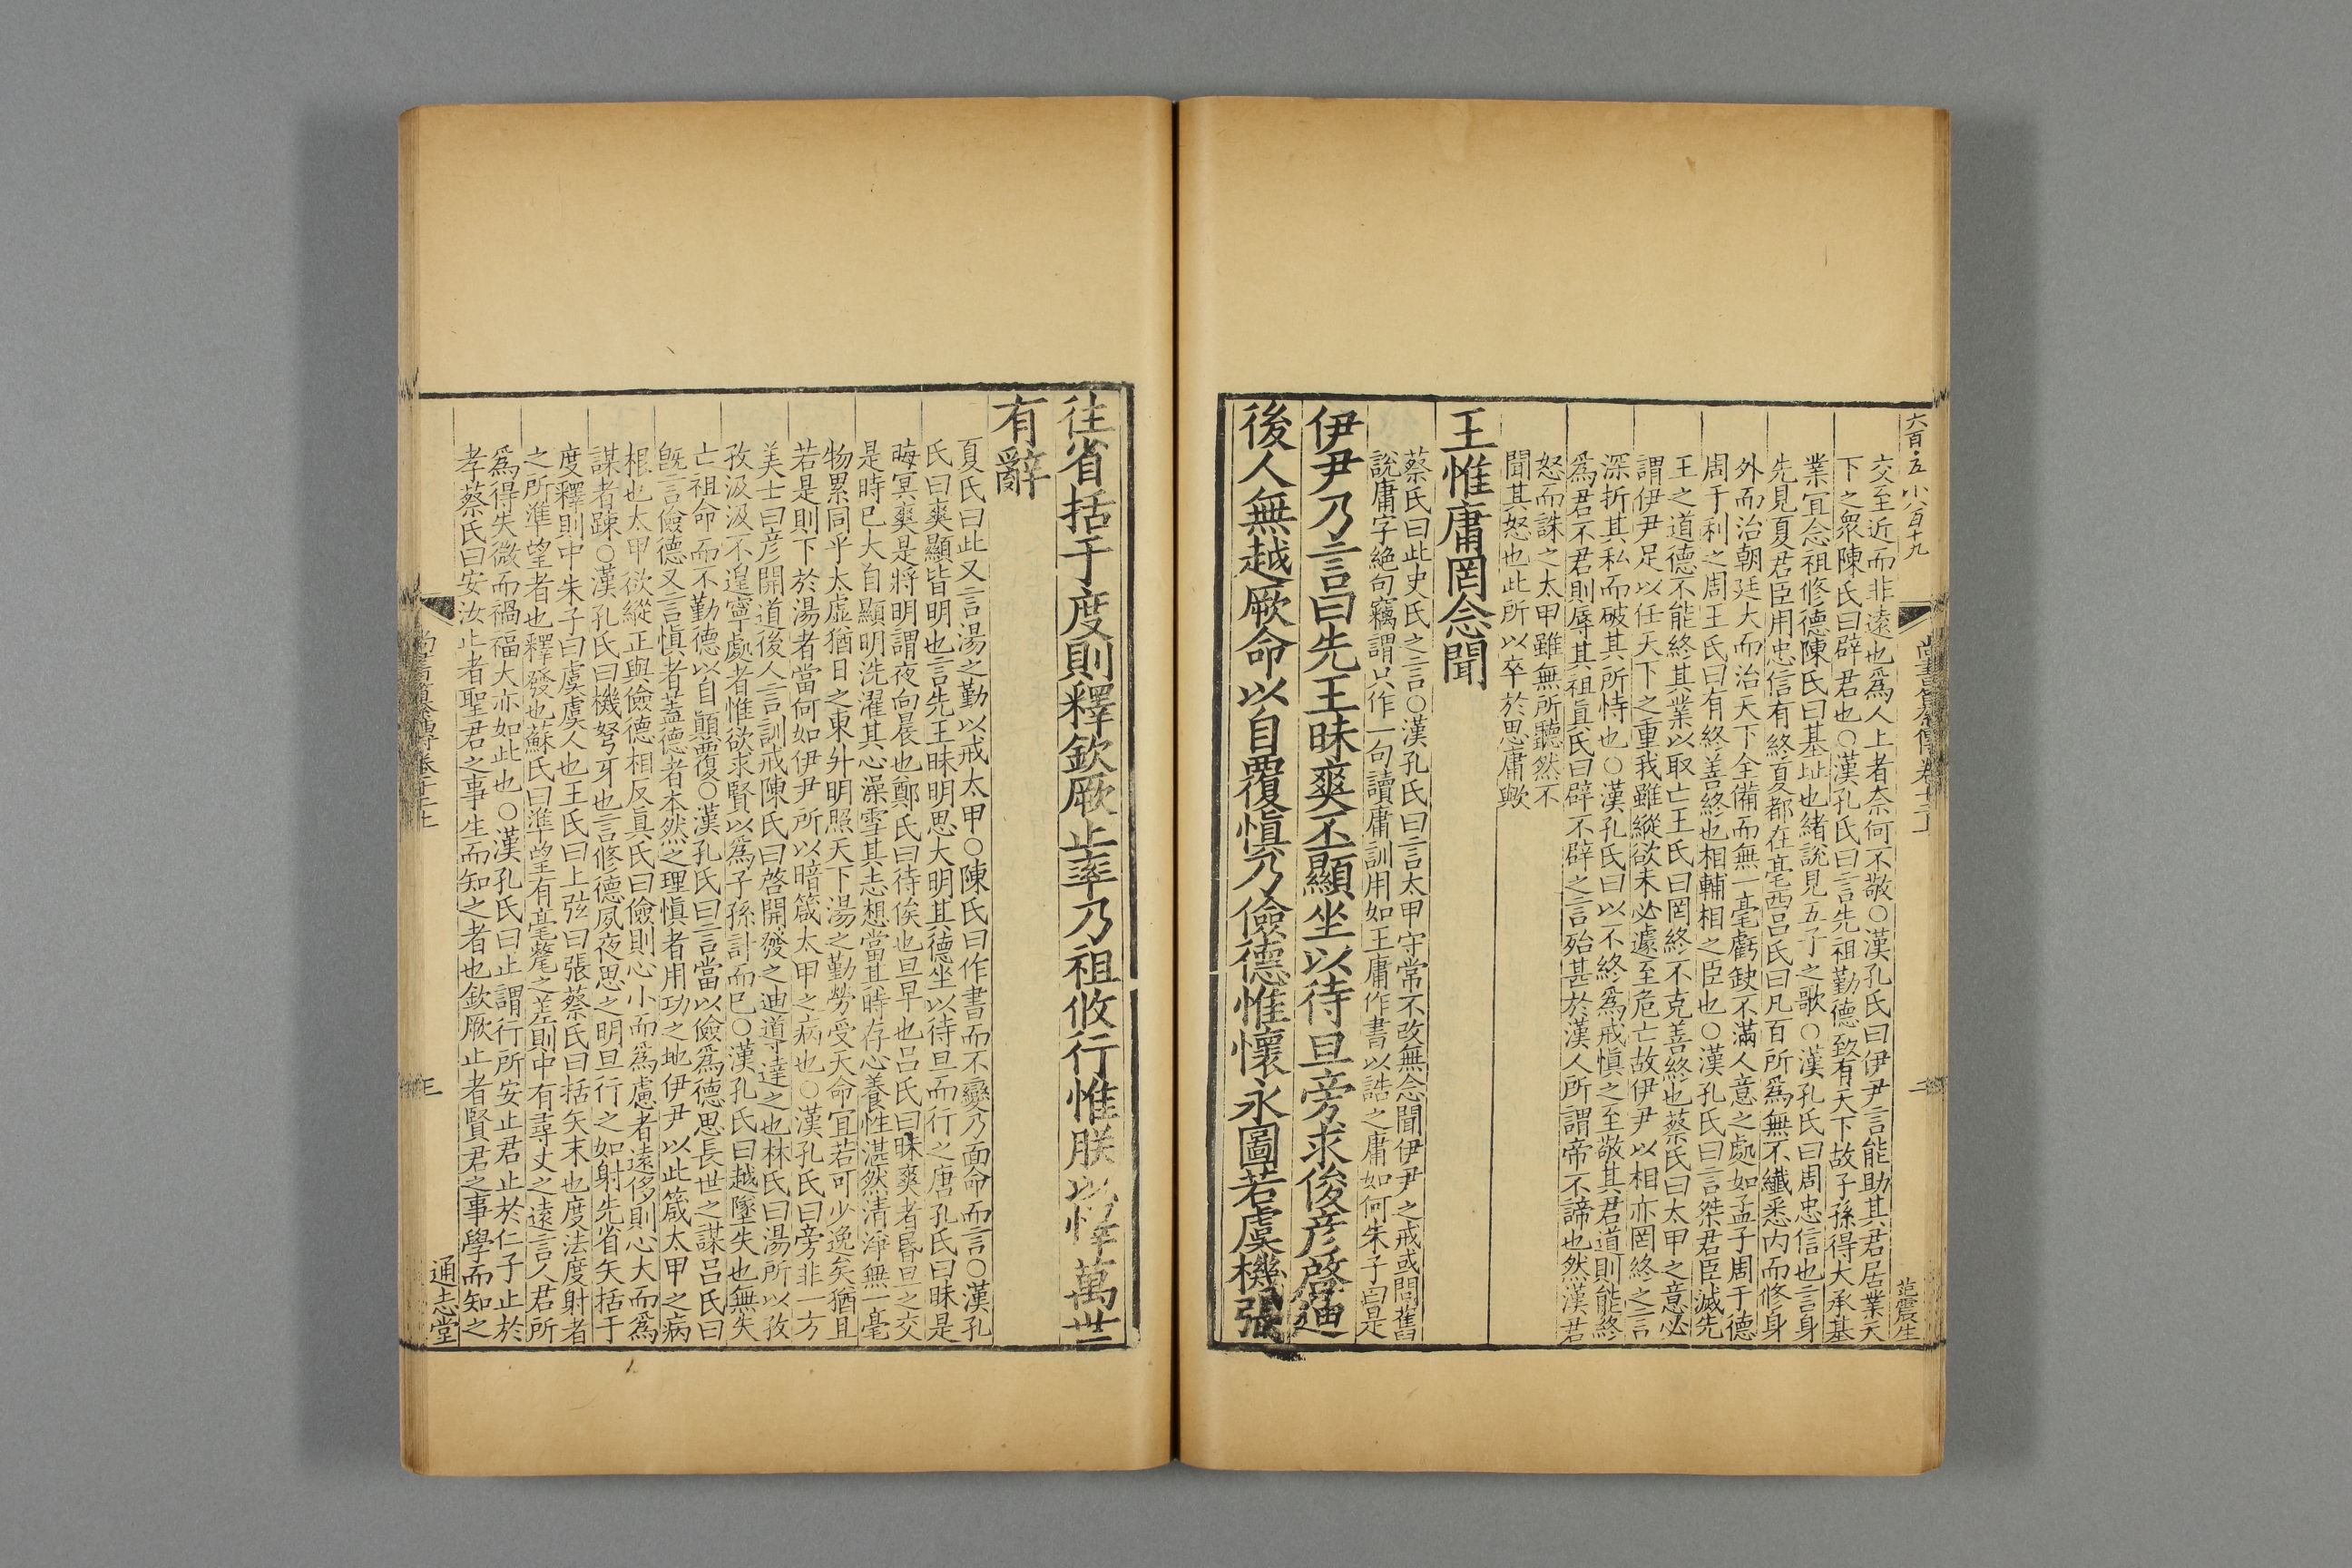 六百五 小八百十九
尚書纂傳卷十二上
二
范震生
交至近而非遠也爲人上者柰何不敬○漢孔氏曰伊尹言能助其君居業天
下之衆陳氏曰辟君也○漢孔氏曰言先祖勤德致有天下故子孫得大承基
業宜念祖修德陳氏曰基址也緒說見五子之歌○漢孔氏曰周忠信也言身
先見夏君臣用忠信有終夏都在亳西吕氏曰凡百所爲無不纖悉内而修身
外而治朝廷大而治天下全備而無一毫虧缺不滿人意之處如孟子周于德
周于利之周王氏曰有終善終也相輔相之臣也○漢孔氏曰言桀君臣滅先
王之道德不能終其業以取亡王氏曰罔終不克善終也蔡氏曰太甲之意必
謂伊尹足以任天下之重我雖縱欲未必遽至危亡故伊尹以相亦罔終之言
深折其私而破其所恃也○漢孔氏曰以不終爲戒慎之至敬其君道則能終
爲君不君則辱其祖眞氏曰辟不辟之言殆甚於漢人所謂帝不諦也然漢若
怒而誅之太甲雖無所聽然不
聞其怒也此所以卒於思庸歟
王惟庸罔念聞
蔡氏曰此史氏之言○漢孔氏曰言太甲守常不改無念聞伊尹之戒或問舊
說庸字絶句竊謂只作一句讀庸訓用如王庸作書以誥之庸如何朱子曰是
伊尹乃言曰先王昧爽丕顯坐以待旦旁求俊彦啓迪
後人無越厥命以自覆慎乃儉德惟懷永圖若虞機張
往省括于度則釋欽厥止率乃祖攸行惟朕以懌萬世
有辭
夏氏曰此又言湯之勤以戒太甲○陳氏曰作書而不變乃面命而言○漢孔
氏曰爽顯皆明也言先王昧明思大明其德坐以待旦而行之唐孔氏曰昧是
晦冥爽是將明謂夜向晨也鄭氏曰待俟也旦早也吕氏曰昧爽者昏旦之交
是時已大自顯明洗濯其心澡雪其志想當其時存心養性湛然清淨無一毫
物累同乎太虛猶日之東升明照天下湯之勤勞受天命宜若可少逸矣猶且
若是則下於湯者當何如伊尹所以暗箴太甲之病也○漢孔氏曰旁非一方
美士曰彦開道後人言訓戒陳氏曰啓開發之迪道導達之也林氏曰湯所以孜
孜汲汲不遑寧處者惟欲求賢以爲子孫計而已○漢孔氏曰越墜失也無失
亡祖命而不勤德以自顛覆○漢孔氏曰言當以儉爲德思長世之謀吕氏曰
旣言儉德又言慎者蓋德者本然之理慎者用功之地伊尹以此箴太甲之病
根也太甲欲縱正與儉德相反眞氏曰儉則心小而爲慮者遠侈則心大而爲
謀者踈○漢孔氏曰機弩牙也言修德夙夜思之明旦行之如射先省矢括于
度釋則中朱子曰虞虞人也王氏曰上弦曰張蔡氏曰括矢末也度法度射者
之所準望者也釋發也蘇氏曰準望有毫釐之差則中有尋丈之遠言人君所
爲得失微而禍福大亦如此也○漢孔氏曰止謂行所安止君止於仁子止於
孝蔡氏曰安汝止者聖君之事生而知之者也欽厥止者賢君之事學而知之
尚書纂傳卷十二上
三
通志堂